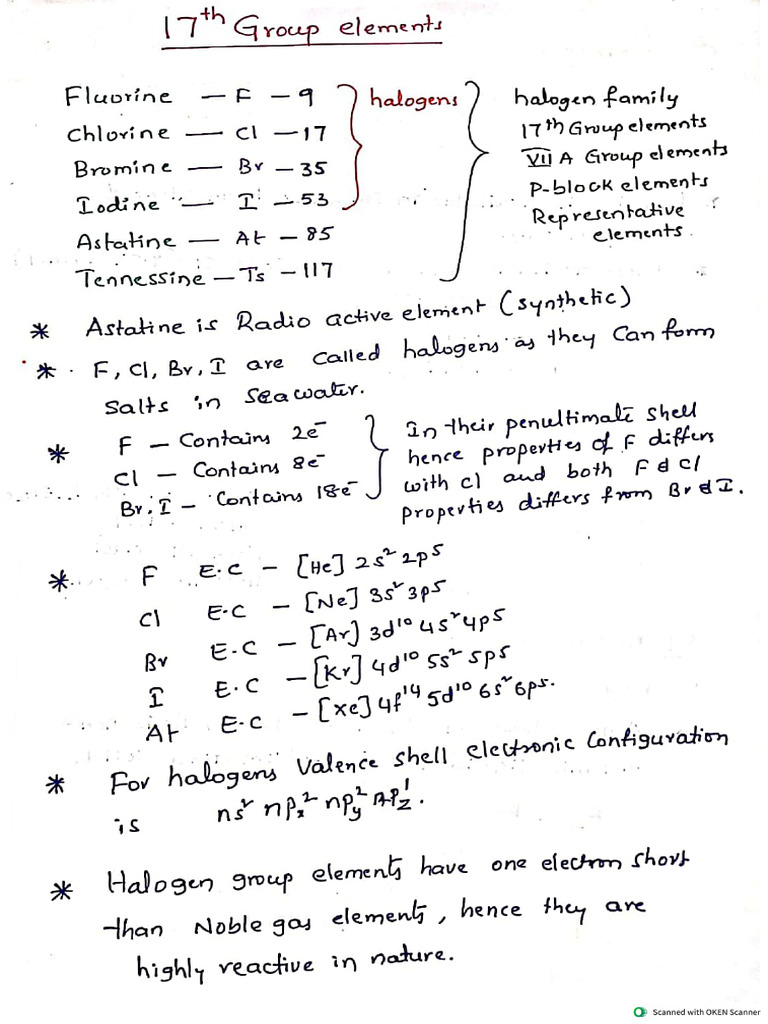 17th Group elements
Fluorine — F — 9
Chlorine — Cl — 17
Bromine — Br — 35
Iodine — I — 53
Astatine — At — 85
Tennessine — Ts — 117
halogens
halogen family
17th Group elements
VII A Group elements
P-block elements
Representative
elements
* Astatine is Radio active element (synthetic)
* F, Cl, Br, I are called halogens as they can form
salts in sea water.
* F — Contains 2e⁻
Cl — Contains 8e⁻
Br, I — Contains 18e⁻
In their penultimate shell
hence properties of F differs
with cl and both F & cl
properties differs from Br & I.
* F E.C — [He] 2s² 2p5
Cl E.C — [Ne] 3s² 3p5
Br E.C — [Ar] 3d¹⁰ 4s² 4p5
I E.C — [Kr] 4d¹⁰ 5s² 5p5
At E.C — [Xe] 4f¹⁴ 5d¹⁰ 6s² 6p5.
* For halogens Valence shell electronic Configuration
is ns² npₓ² npᵧ² np_z¹.
* Halogen group elements have one electron short
than Noble gas elements, hence they are
highly reactive in nature.
Scanned with OKEN Scanner